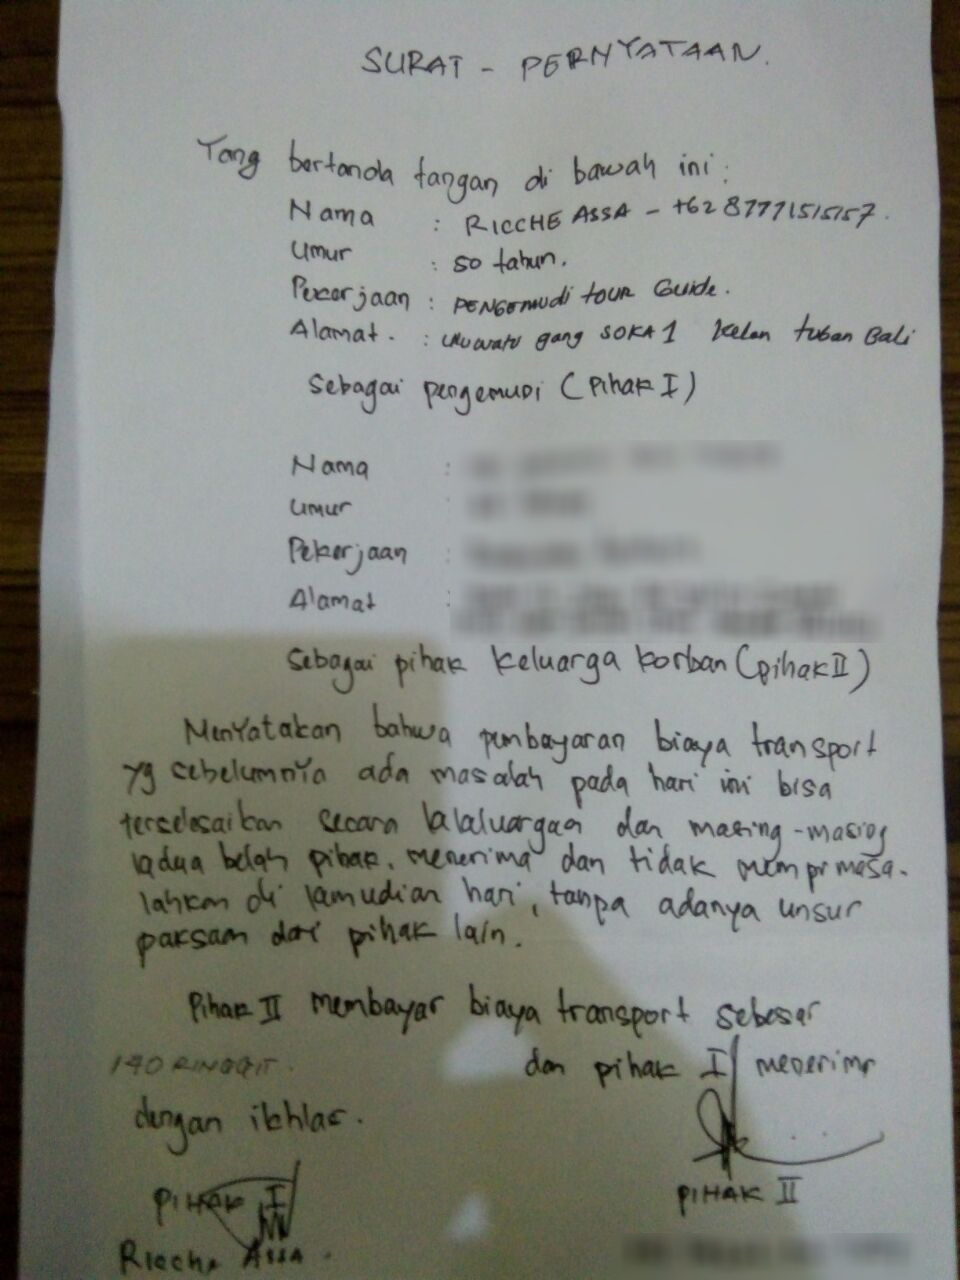 SURAT - PERNYATAAN.
Yang bertanda tangan di bawah ini:
Nama : RICCHE ASSA - +62 87771515157.
Umur : 50 tahun.
Pekerjaan : PENGEMUDI TOUR Guide.
Alamat. : uluwatu gang SOKA 1 kelan tuban Bali
Sebagai pengemudi (Pihak I)
Nama :
Umur
Pekerjaan :
Alamat :
Sebagai pihak keluarga korban (pihak II)
Menyatakan bahwa pembayaran biaya transport
yg sebelumnya ada masalah pada hari ini bisa
terselesaikan secara kalaluargaan dan masing-masing
kadua belah pihak. menerima dan tidak mempr masa-
lahkan di kamudian hari, tanpa adanya unsur
paksaan dari pihak lain.
Pihak II membayar biaya transport sebesar
140 RINGGIT. dan pihak I menerima
dengan ikhlas.
PIHAK I PIHAK II
Ricche Assa.